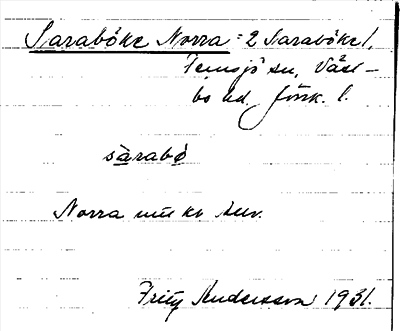 Saraböke Norra = 2 Saraböke /,
Femsjö sn, Väst-
bo hd, Jönk. l.
sàrabø
Norra
Fritz Andersson 1931.